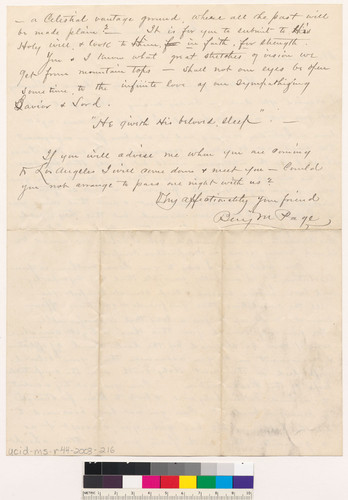 - a Celestial vantage ground, where all the past will
be made plain? - It is for you to submit to His
Holy will, & look to Him, for in faith, for strength.
You & I know what great stretches of vision we
get from mountain tops - Shall not our eyes be open
sometime to the infinite love of our sympathizing
Savior & Lord.
"He giveth His beloved sleep". -
If you will advise me when you are coming
to Los Angeles I will come down & meet you - Could
you not arrange to pass one night with us?
Very affectionately your friend
Benj M Page
ucid-ms-r49-2008-216